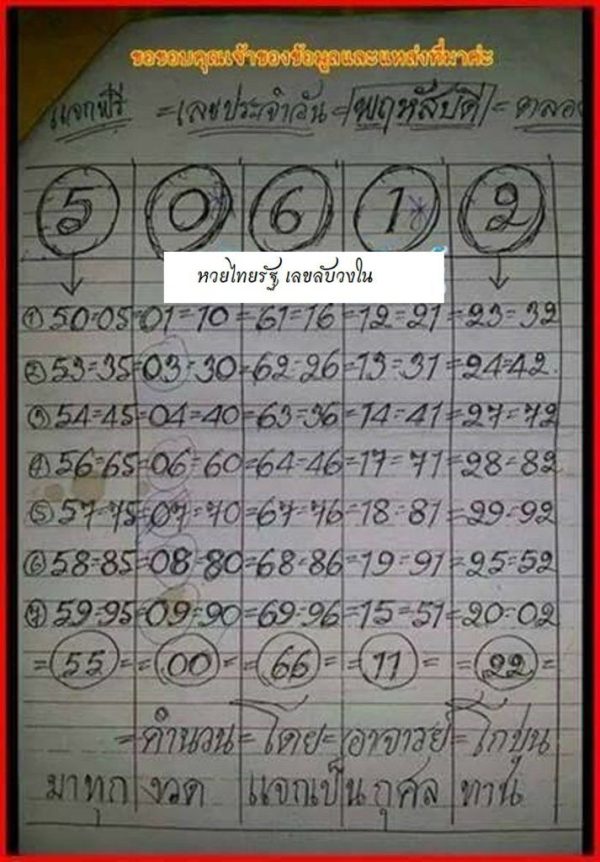 ขอขอบคุณเจ้าของข้อมูลและแหล่งที่มาค่ะ
แจกฟรี =เลขประจำวัน= พฤหัสบดี =ตลอด
5 0 6 1 2
หวยไทยรัฐ เลขลับวงใน
① 50=05=01=10=61=16=12=21=23=32
② 53=35=03=30=62=26=13=31=24=42
③ 54=45=04=40=63=36=14=41=27=72
④ 56=65=06=60=64=46=17=71=28=82
⑤ 57=75=07=70=67=76=18=81=29=92
⑥ 58=85=08=80=68=86=19=91=25=52
⑦ 59=95=09=90=69=96=15=51=20=02
=55= =00= =66= =11= =22=
=คำนวน=โดย=อาจารย์=โกปุ่น
มาทุก งวด แจกเป็น กุศล ทาน